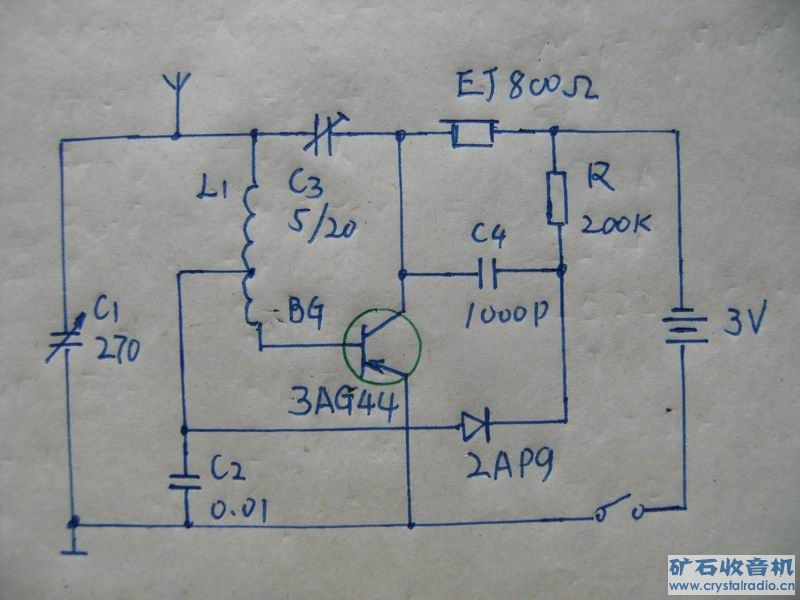 EJ 800Ω
L1
C3
5/20
R
200K
C4
1000P
C1
270
BG
3V
3AG44
2AP9
C2
0.01
矿石收音机
www.crystalradio.cn